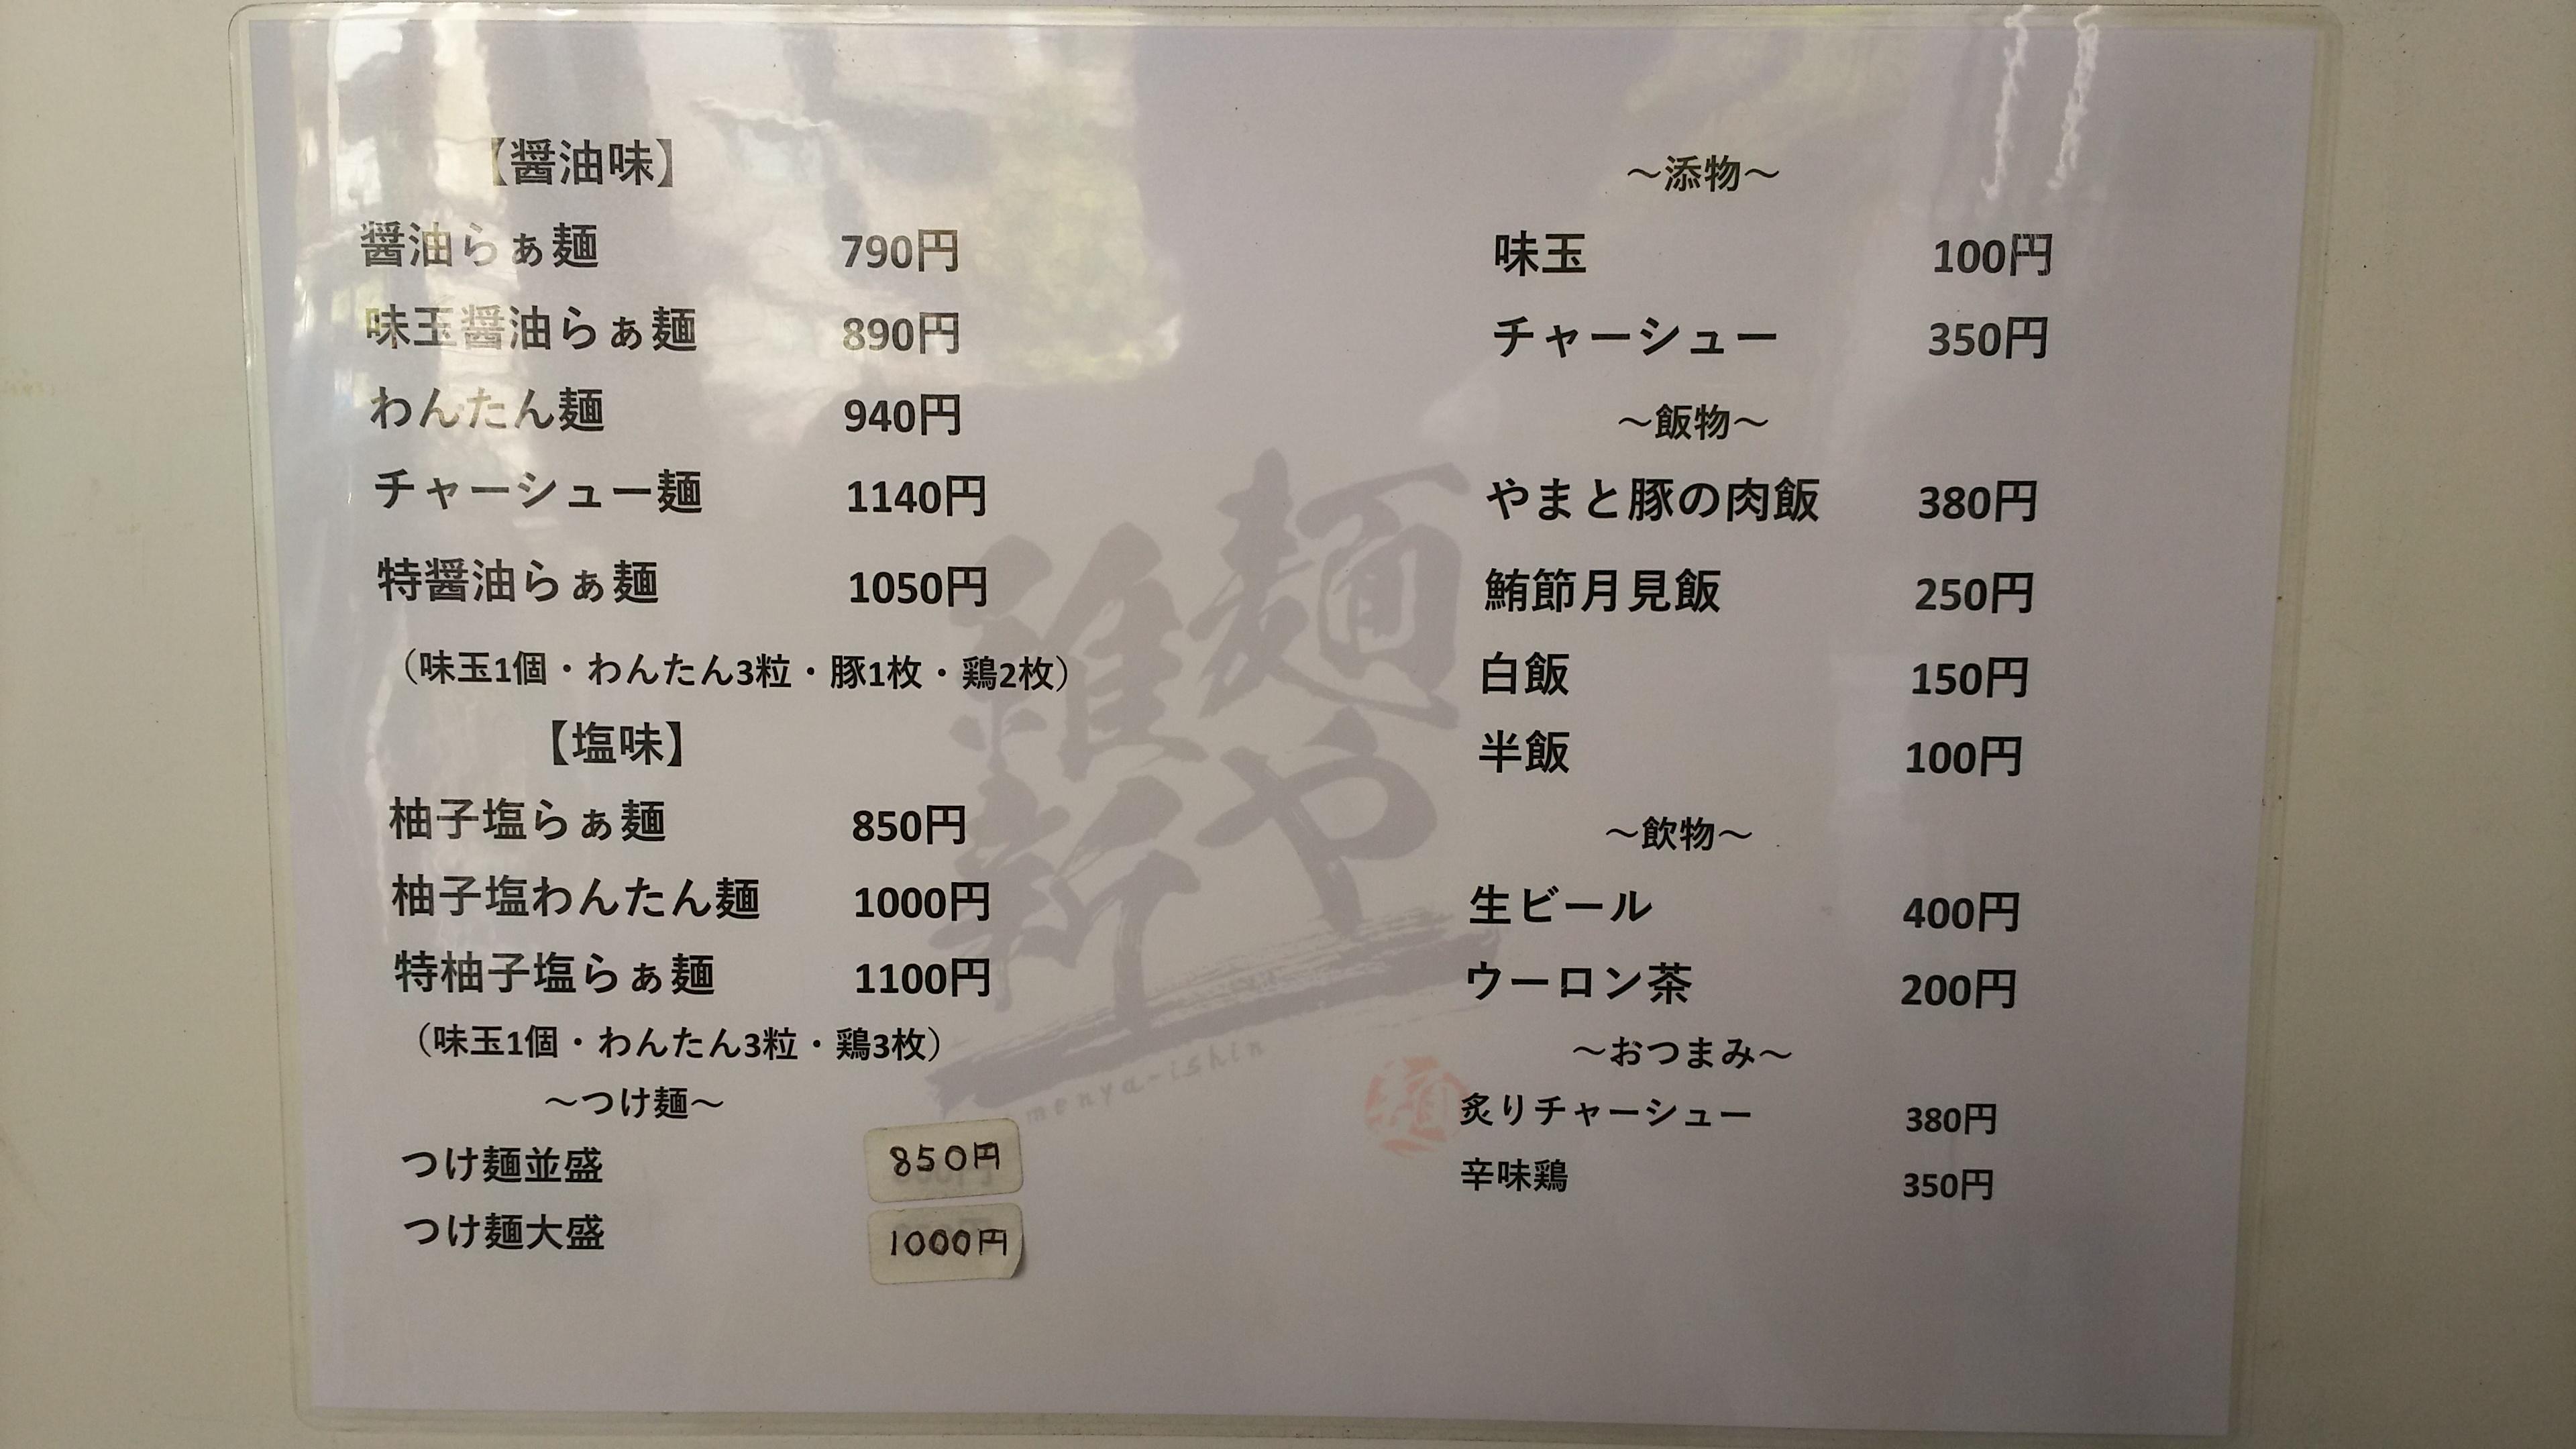 【醤油味】
醤油らぁ麺 790円
味玉醤油らぁ麺 890円
わんたん麺 940円
チャーシュー麺 1140円
特醤油らぁ麺 1050円
（味玉1個・わんたん3粒・豚1枚・鶏2枚）
【塩味】
柚子塩らぁ麺 850円
柚子塩わんたん麺 1000円
特柚子塩らぁ麺 1100円
（味玉1個・わんたん3粒・鶏3枚）
～つけ麺～
つけ麺並盛 850円
つけ麺大盛 1000円
～添物～
味玉 100円
チャーシュー 350円
～飯物～
やまと豚の肉飯 380円
鮪節月見飯 250円
白飯 150円
半飯 100円
～飲物～
生ビール 400円
ウーロン茶 200円
～おつまみ～
炙りチャーシュー 380円
辛味鶏 350円
麺や
維新
menya-ishin